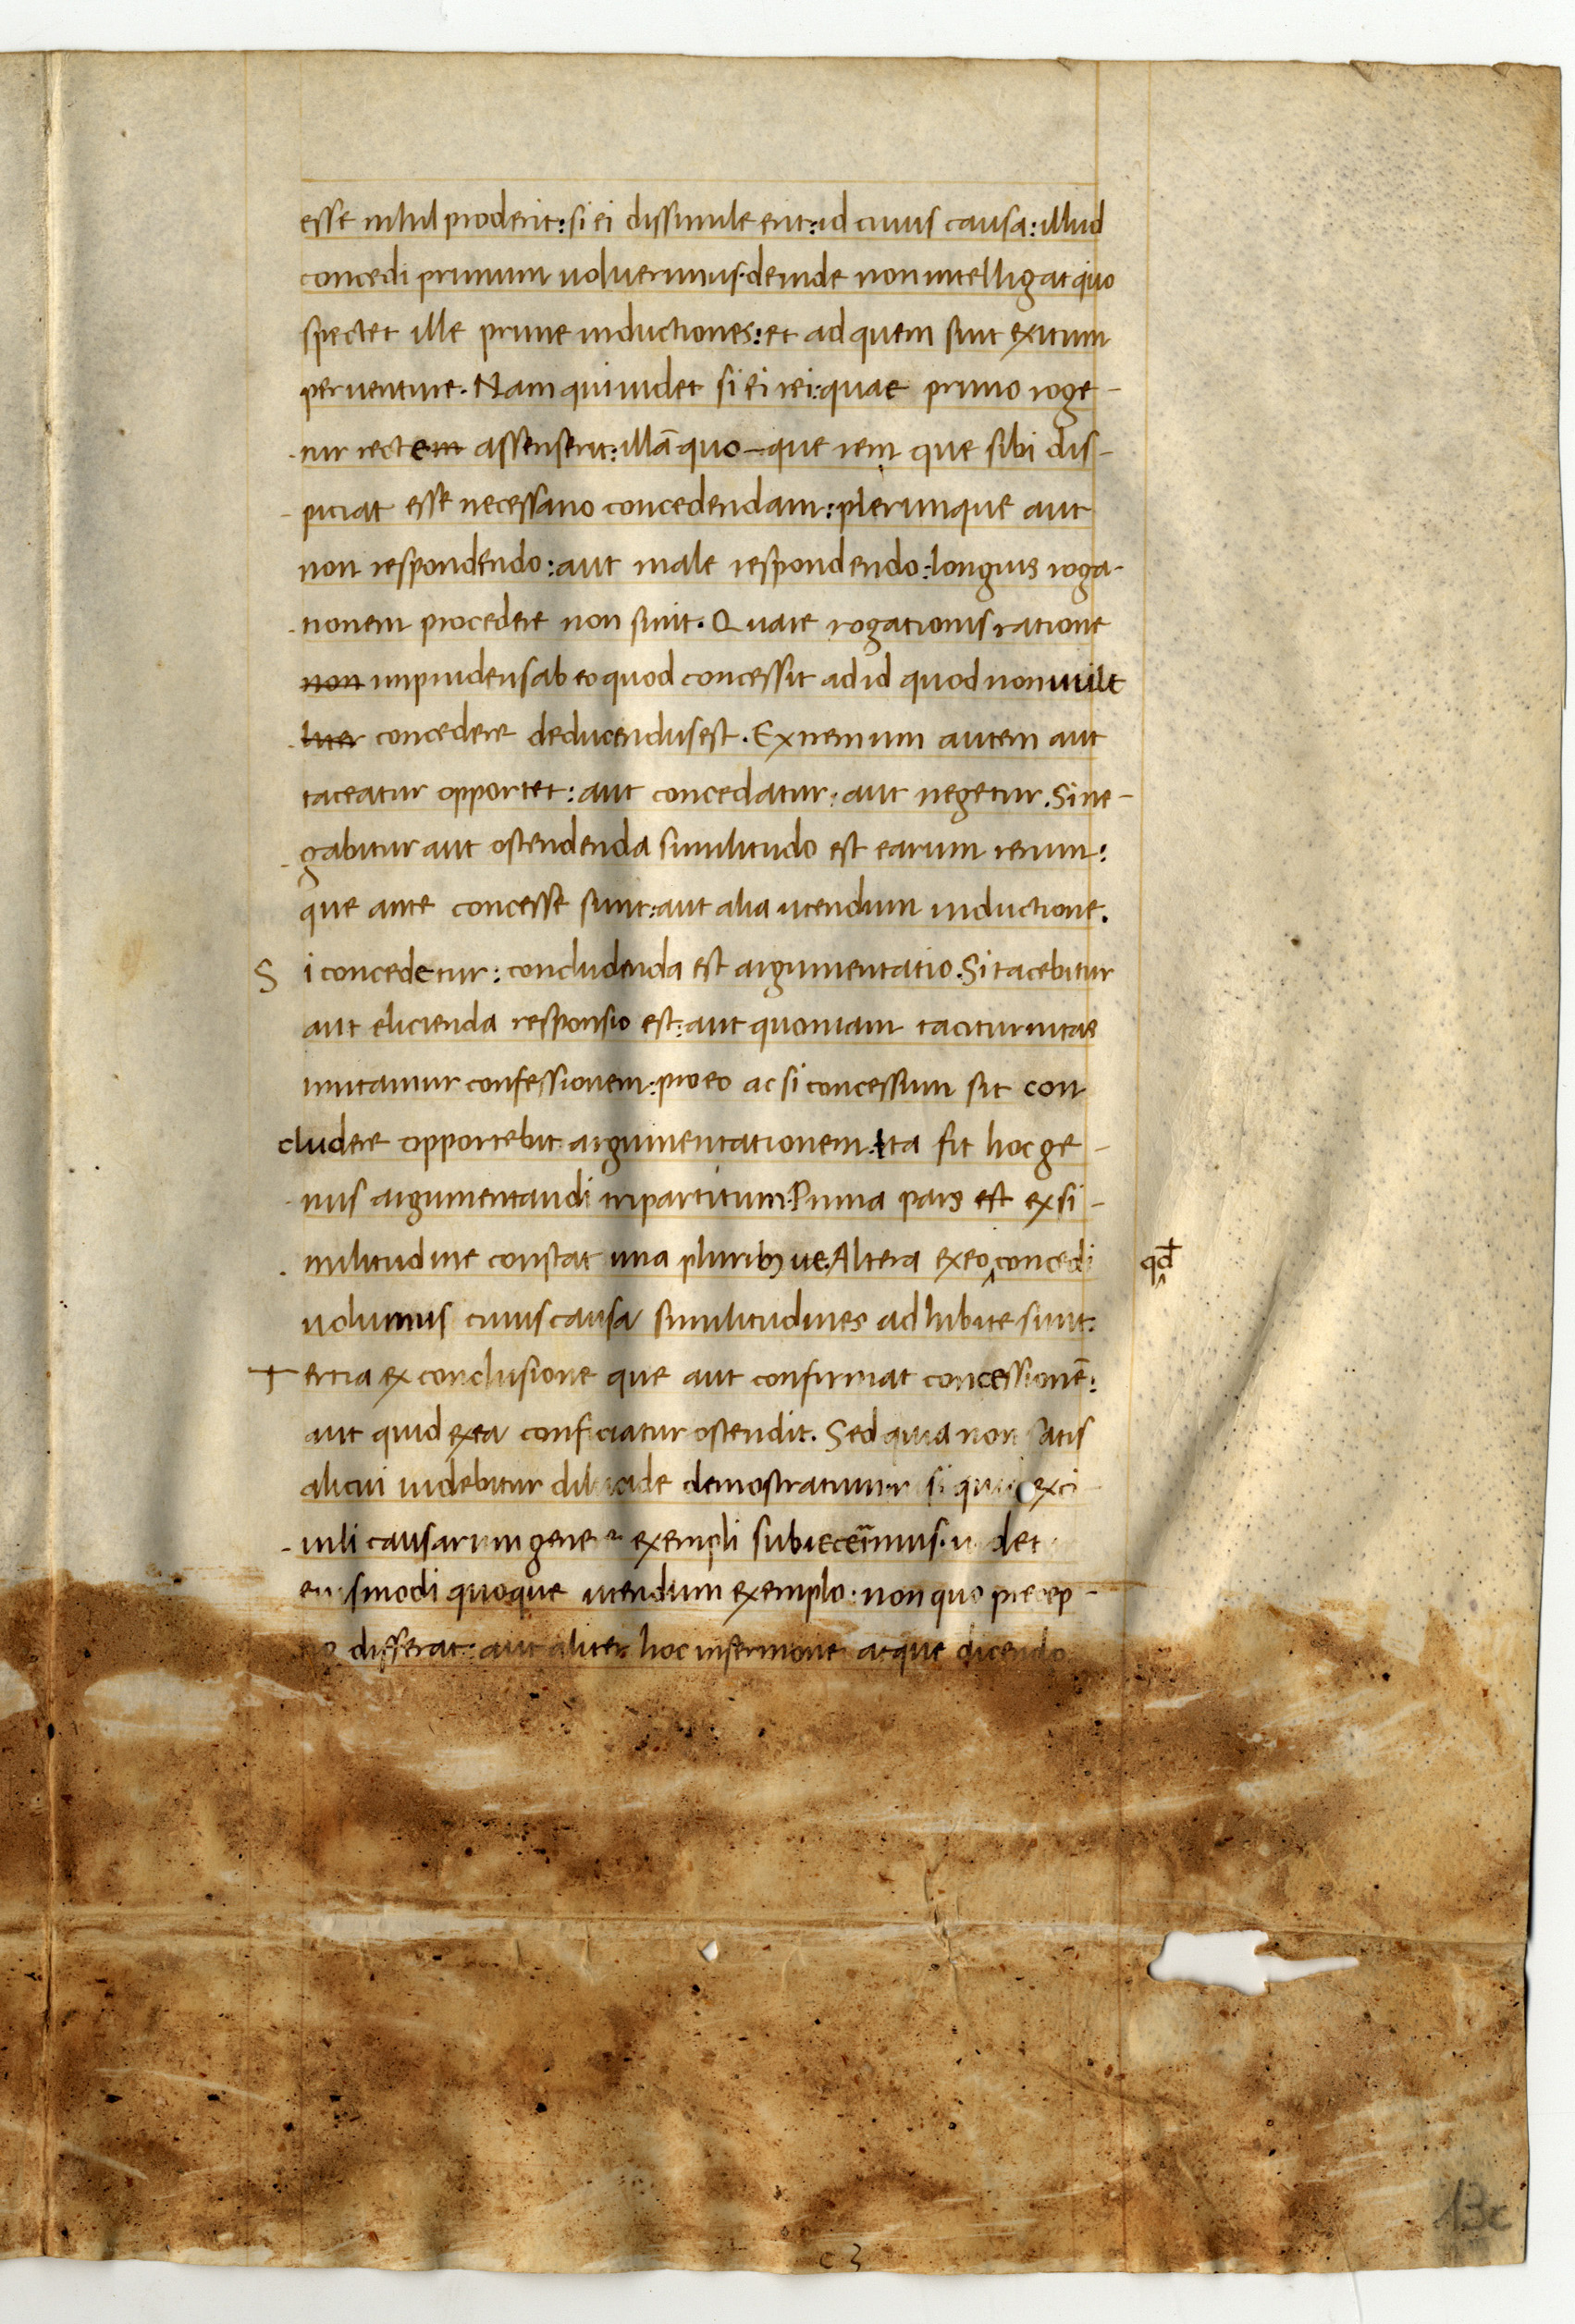 esse nihil proderit: si ei dissimile erit: id cuius causa: illud
concedi primum voluerimus. deinde non intelligat quo
spectet ille prime inductiones: et ad quem sint exitum
perventure. Nam qui videt si ei rei: quae primo roge-
tur rectem assenserit: illā quo-que rem que sibi dis-
piciat esse necessario concedendam: plerunque aut
non respondendo: aut male respondendo: longius roga-
tionem procedere non sinit. Quare rogationis ratione
non imprudens ab eo quod concessit ad id quod non vult
concedere deducendus est. Extremum autem aut
taceatur opportet: aut concedatur: aut negetur. Si ne-
gabitur aut ostendenda similitudo est earum rerum:
que ante concesse sunt: aut alia utendum inductione.
Si concedetur: concludenda est argumentatio. Si tacebitur
aut elicienda responsio est: aut quoniam taciturnitas
imitatur confessionem: pro eo ac si concessum sit con
cludere opportebit argumentationem. Ita fit hoc ge-
nus argumentandi tripartitum. Prima pars est ex si-
militudine constat una pluribȝ ve. Altera ex eo concedi qđ
volumus cuius causa similitudines adhibite sunt:
Tertia ex conclusione que aut confirmat concessionē:
aut quid ex ea conficiatur ostendit. Sed quia non satis
alicui videbitur dilucide demostratum si ex ci
vili causarum genere exempli subiecerimus. videt
eiusmodi quoque utendum exemplo: non quo precep-
differat: aut aliter hoc in sermone atque dicendo
c 3
13c